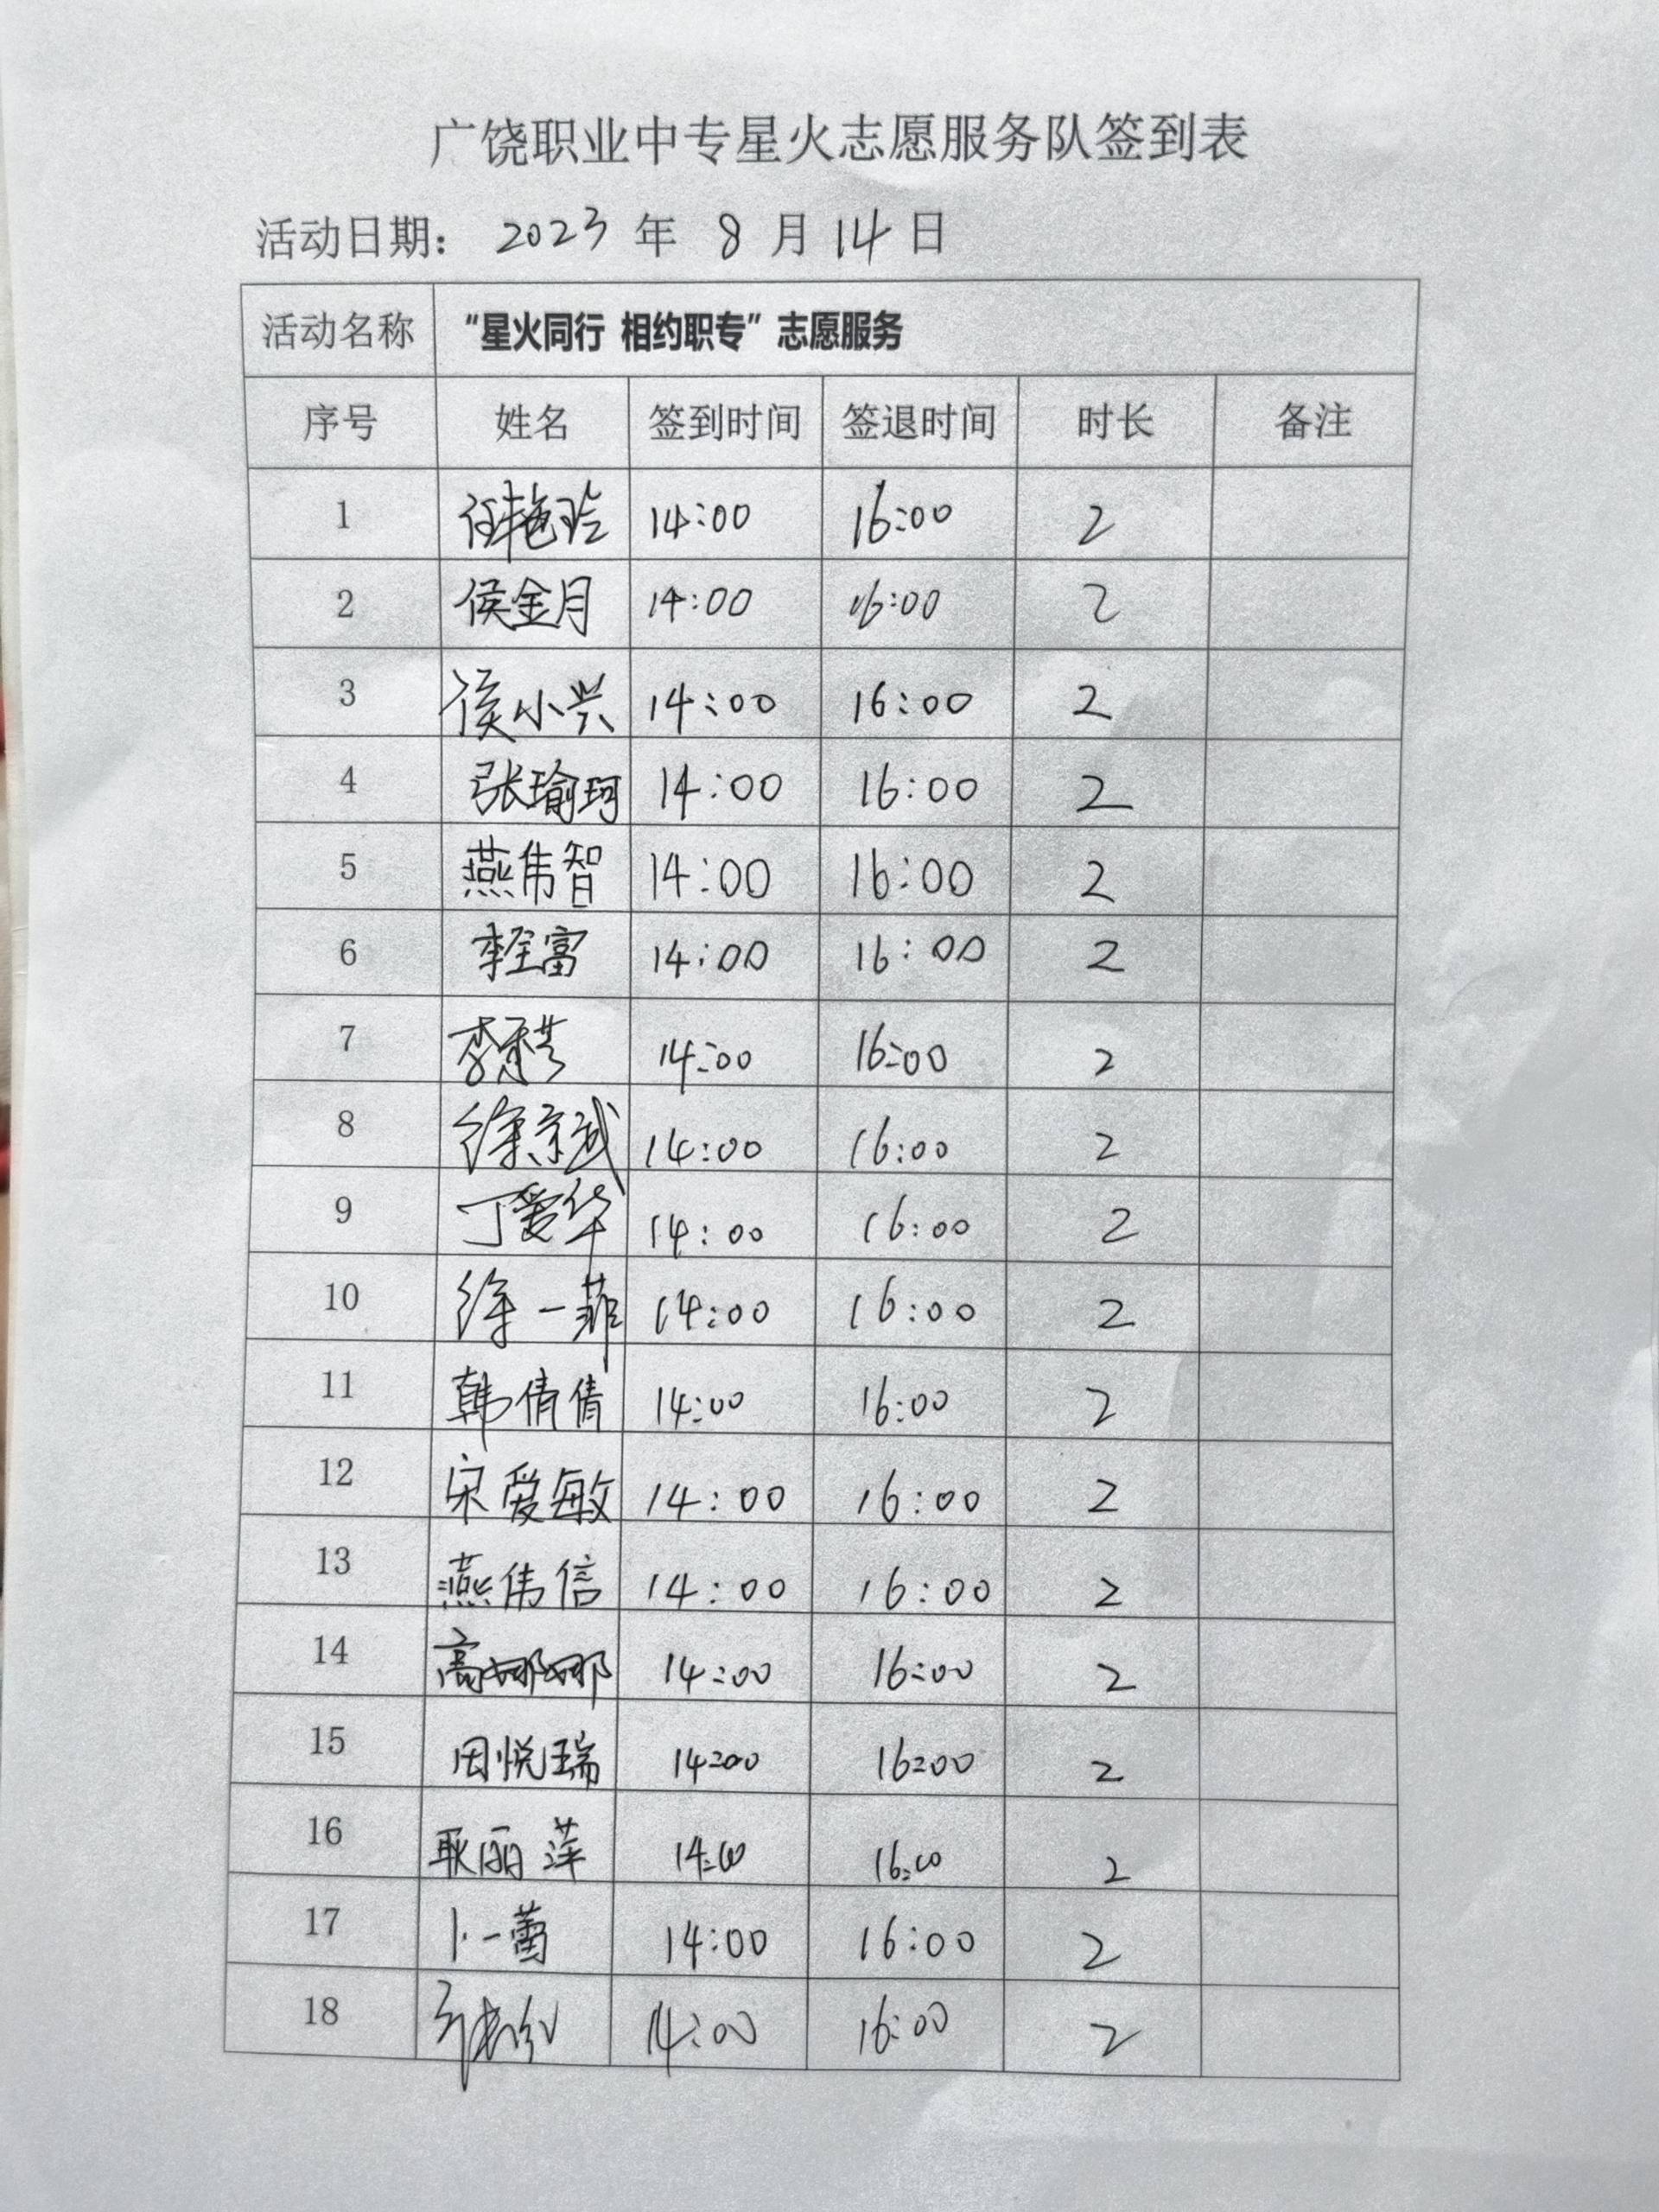 广饶职业中专星火志愿服务队签到表
活动日期： 2023 年 8 月 14 日
活动名称 “星火同行 相约职专”志愿服务
序号 姓名 签到时间 签退时间 时长 备注
1 任艳玲 14:00 16:00 2
2 侯金月 14:00 16:00 2
3 侯小兴 14:00 16:00 2
4 张瑜珂 14:00 16:00 2
5 燕伟智 14:00 16:00 2
6 李全富 14:00 16:00 2
7 14:00 16:00 2
8 徐京武 14:00 16:00 2
9 丁爱华 14:00 16:00 2
10 徐一菲 14:00 16:00 2
11 韩倩倩 14:00 16:00 2
12 宋爱敏 14:00 16:00 2
13 燕伟信 14:00 16:00 2
14 高娜娜 14:00 16:00 2
15 田悦瑞 14:00 16:00 2
16 耿丽萍 14:00 16:00 2
17 卜一蕾 14:00 16:00 2
18 14:00 16:00 2